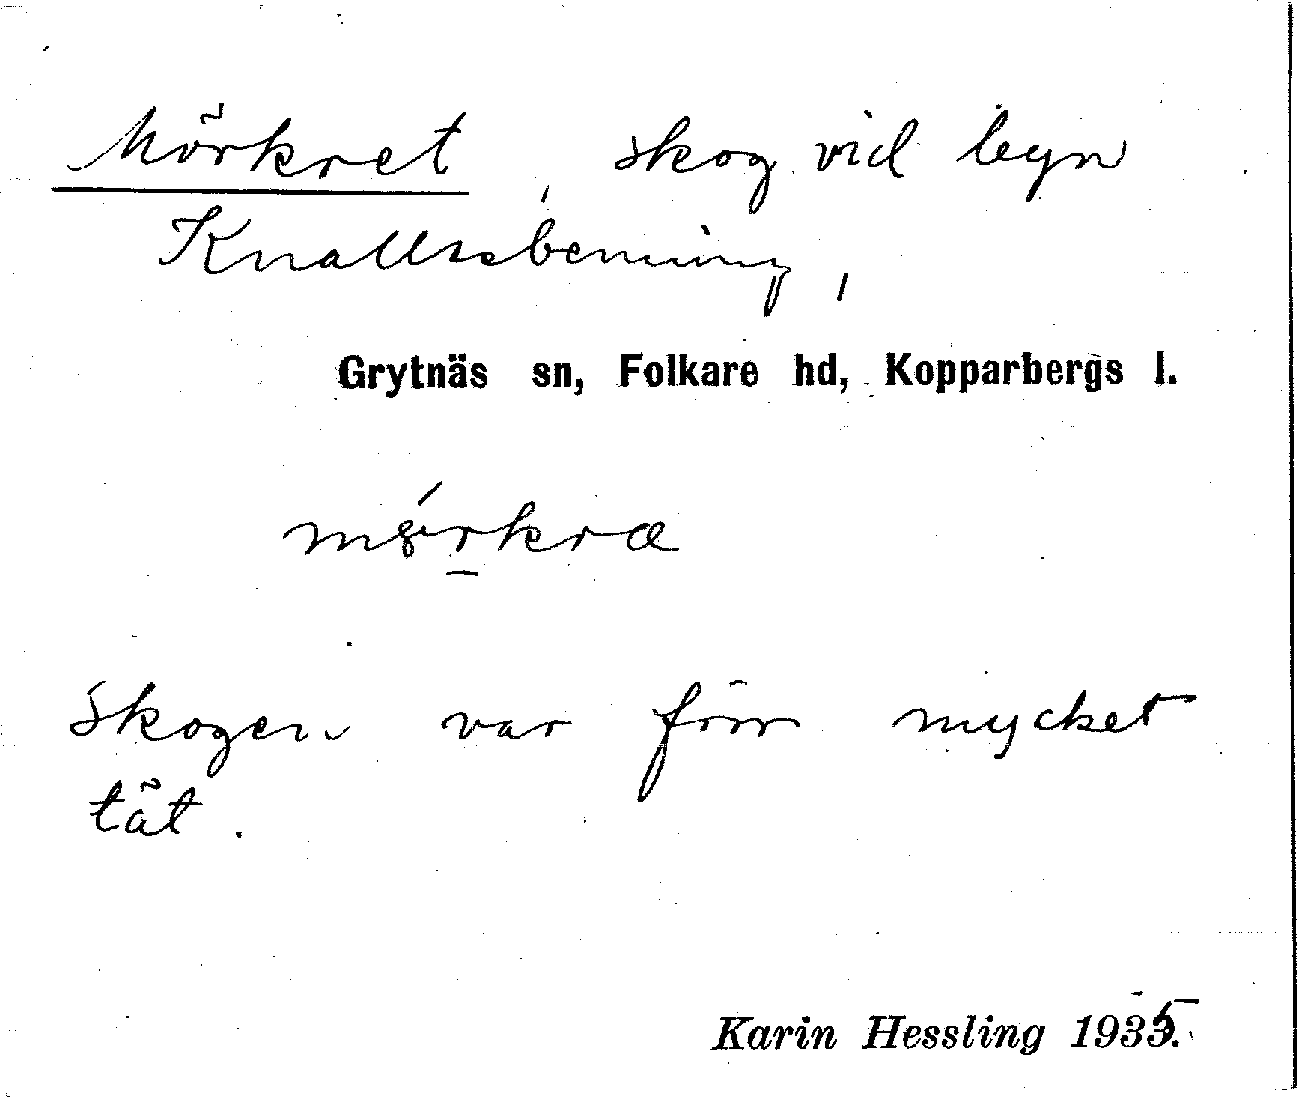 Mörkret, skog vid byn
Knallsbenning,
Grytnäs sn, Folkare hd, Kopparbergs l.
Skogen var förr mycket
tät.
Karin Hessling 1935.